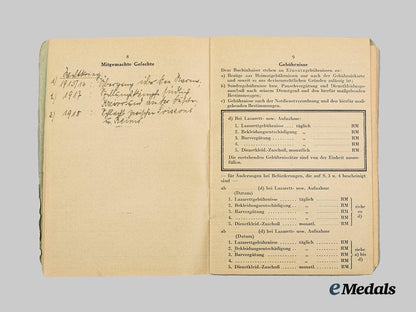 8
Mitgemachte Gefechte
Weltkrieg
1) 1915/16:
2) 1917
3) 1918
9
Gebührnisse
Dem Buchinhaber stehen an Einsatzgebührnissen zu:
a) Bezüge zur Heimatgebührnissen nur nach der Gebührniskarte
und soweit es aus devisenrechtlichen Gründen zulässig ist;
b) Sondergebührnisse bzw. Pauschvergütung und Dienstkleidungs-
zuschuß nach seinem Dienstgrad und den hierfür maßgebenden
Bestimmungen;
c) Gebührnisse nach der Notdienstverordnung und den hierfür maß-
gebenden Bestimmungen.
d) Bei Lazarett- usw. Aufnahme:
1. Lazarettgebührnisse täglich RM
2. Bekleidungsentschädigung „ RM
3. Barvergütung „ RM
4. „ RM
5. Dienstkleid.-Zuschuß, monatlich RM
Die zustehenden Gebührnissätze sind von der Einheit auszu-
füllen.
für Änderungen bei Beförderungen, die auf S. 3 u. 4 bescheinigt
sind
ab (d) bei Lazarett- usw. Aufnahme)
(Datum)
1. Lazarettgebührnisse täglich RM
2. Bekleidungsentschädigung „ RM siehe
3. Barvergütung „ RM zu
4. „ RM d)
5. Dienstkleid.-Zuschuß monatl. RM
ab (d) bei Lazarett- usw. Aufnahme)
(Datum)
1. Lazarettgebührnisse täglich RM
2. Bekleidungsentschädigung „ RM siehe
3. Barvergütung „ RM
4. „ RM d)
5. Dienstkleid.-Zuschuß monatl. RM
eMedals